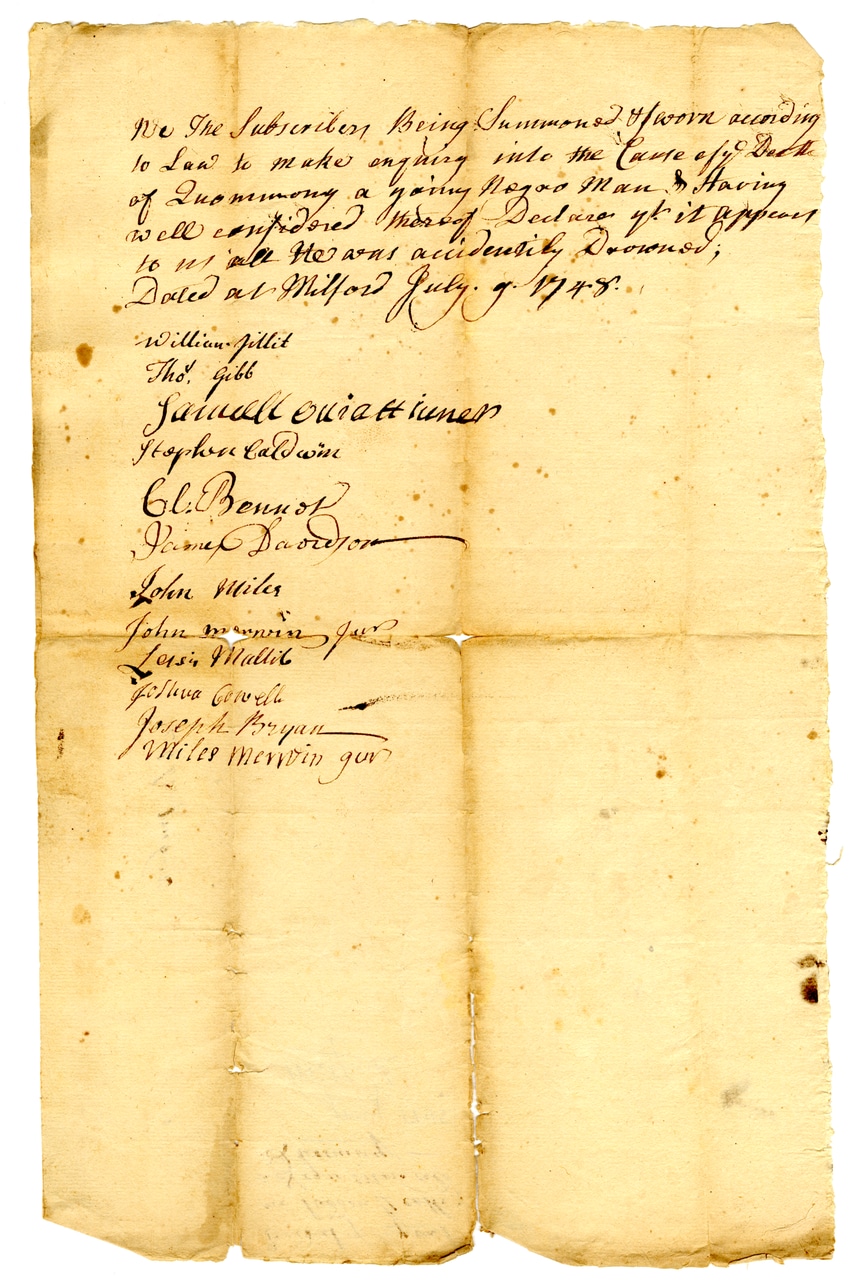 We The Subscribers Being Summoned & sworn according
to Law to make enquiry into the Cause of ye Death
of Quommony a young Negro Man & Having
well considered thereof Declare yt it appears
to us all He was accidentily Drowned;
Dated at Milford July. 9. 1748.
William fillit
Thos. Gibb
Samuell
Stephen Baldwin
Bennet
James Davidson
John Miles
John merwin Jur
Mallit
Joshua Cowell
Joseph Bryan
Miles Merwin jur